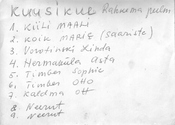 KUUSIKUL Rahvama pulm
1. Kiili MAALI
2. KOIK MARIE (Saariste)
3. Vorotinski Linda
4. Hermaküla Asta
5. Timber Sophie
6. Timber OTTO
7. Kaldma Ott
8. Neerut
9. Neerut